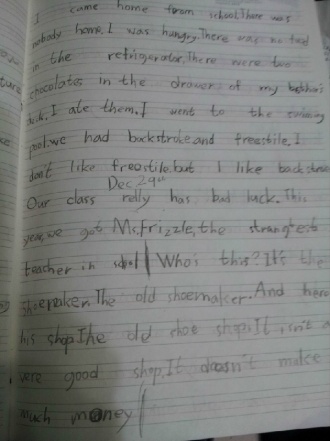 I came home from school.There was
nobody home.I was hungry.There was no food
in the refrigerator.There were two
chocolates in the drawer of my brother's
desk.I ate them.I went to the swimming
pool.we had backstroke and freestile.I
don't like freestile.but I like backstroke
Dec 29th
Our class relly has bad luck.This
year,we got Ms.Frizzle,the strangtest
teacher in school Who's this?It's the
shoepaker.The old shoemaker.And here
his shop.The old shoe shop.It isn't a
very good shop.It doesn't make
much money